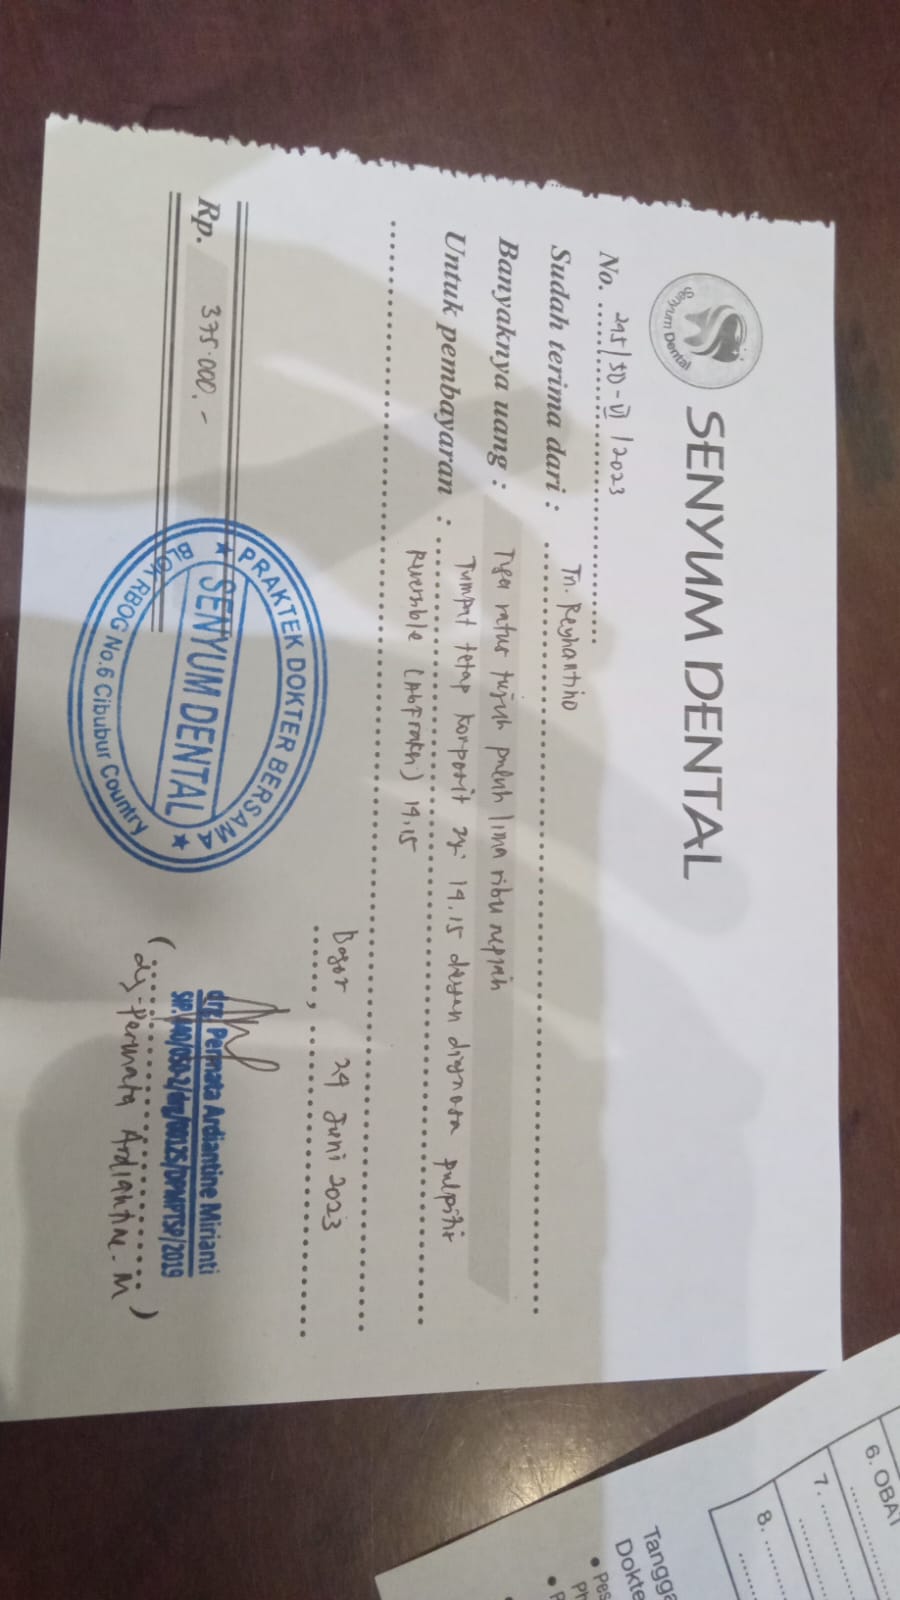 Senyum Dental
SENYUM DENTAL
No. 245/SD-VI/2023
Sudah terima dari : Tn. Reyhantino
Banyaknya uang : Tiga ratus tujuh puluh lima ribu rupiah
Untuk pembayaran : Tumpat tetap komposit gg: 14.15 dengan diagnosa pulpitis
Reversible (Abfraksi) 14.15
Bogor, 24 Juni 2023
Rp. 375.000.-
PRAKTEK DOKTER BERSAMA
SENYUM DENTAL
BLOK RBOG No.6 Cibubur Country
drg. Permata Ardiantine Mirianti
SIP. 440/050-2/drg/00125/DPMPTSP/2019
(drg. Permata Ardiantine. M)
6. OBAT
7.
8.
Dokte